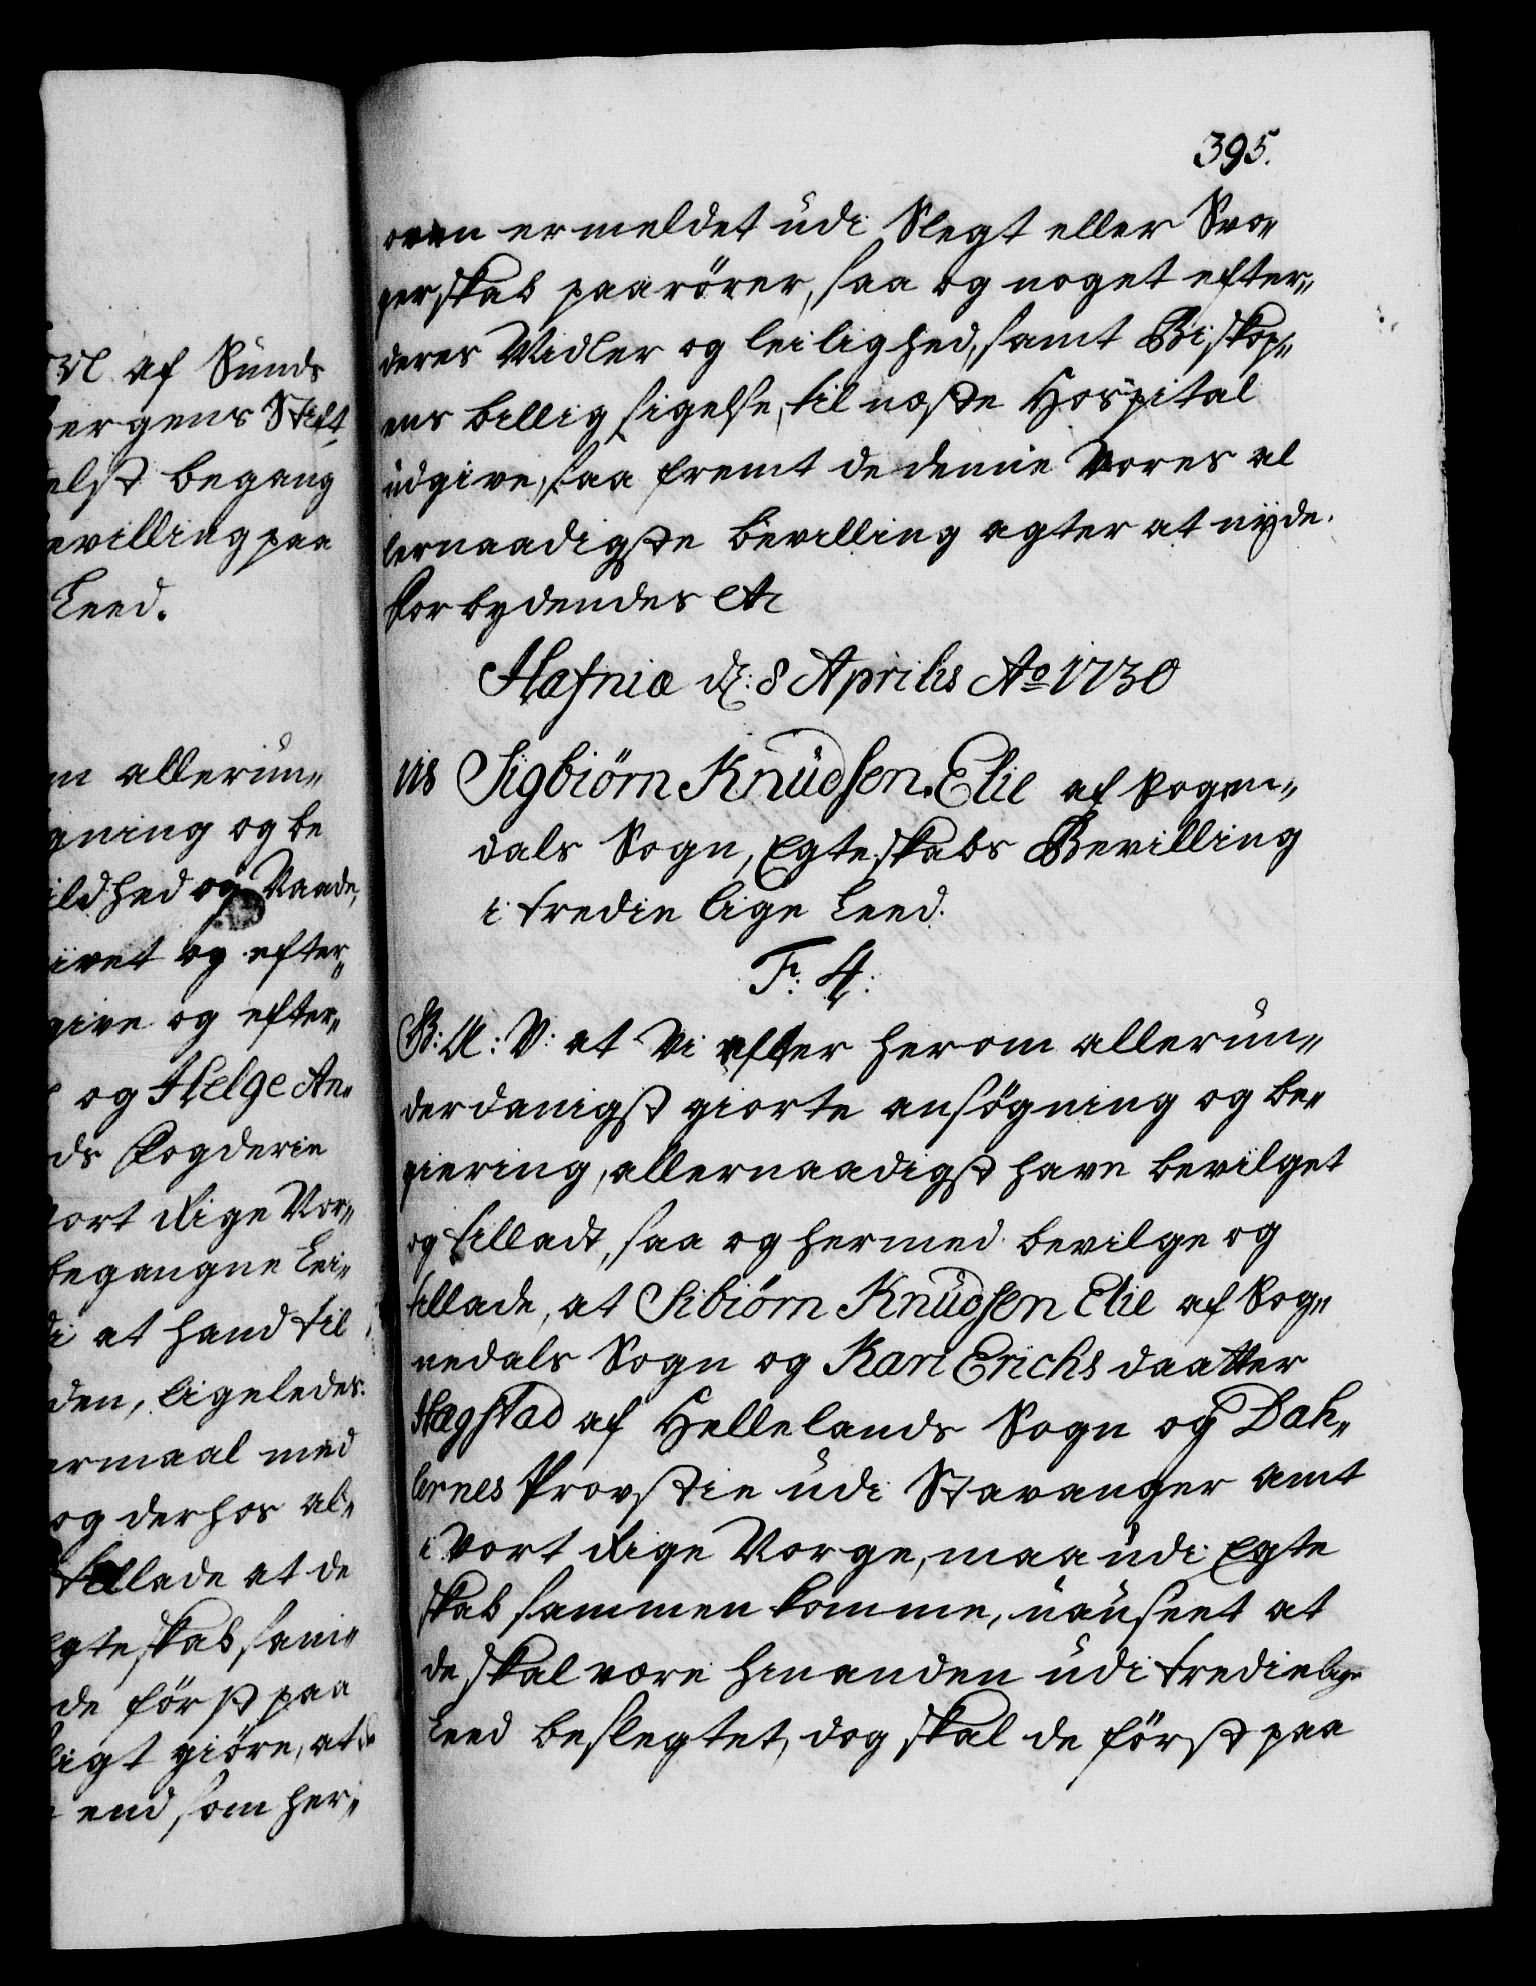 395.
oven ermeldet udi Slegt eller Svo-
gerskab paarörer, saa og noget efter-
deres Midler og leilighed, samt Biskop-
ens billig sigelse, til næste Hospital
udgive, saa fremt de denne Vores al
lernaadigste bevilling agter at nÿde.
Forbydendes etc
Hafniæ d: 8 Aprilis Ao 1730
118 Sigbiörn Knudsen. Elie af Sogen-
dals Sogn, Egteskabs Bevilling
i tredie lige Leed.
F: 4:
G: A: V: at Vi efter herom allerun-
derdanigst giorte ansögning og be-
giering, allernaadigst have bevilget
og tilladt, saa og hermed bevilge og
tillade, at Sibiörn Knudsen Elie af Sog-
nedals Sogn og Kari Erichs daatter
Hægstad af Hellelands Sogn og Dah-
lernes Provstie udi Stavanger Amt
i Vort Rige Norge, maa udi Egte
skab sammen komme, uanseet at
de skal være hinanden udi tredie lige
Leed beslegtet, dog skal de först paa
af Sunds
ergens Stift,
elst begang
evilling paa
Leed.
allerun-
gning og be
ildhed og Naade,
ivet og efter-
give og efter-
og Helge An-
ds Fogderie
Vort Rige Nor-
begangne Lei-
di at hand til
den, ligeledes:
ermaal med
og derhos al-
tillade at de
Egteskab sam-
de först paa
ligt giöre, at de
end som her-